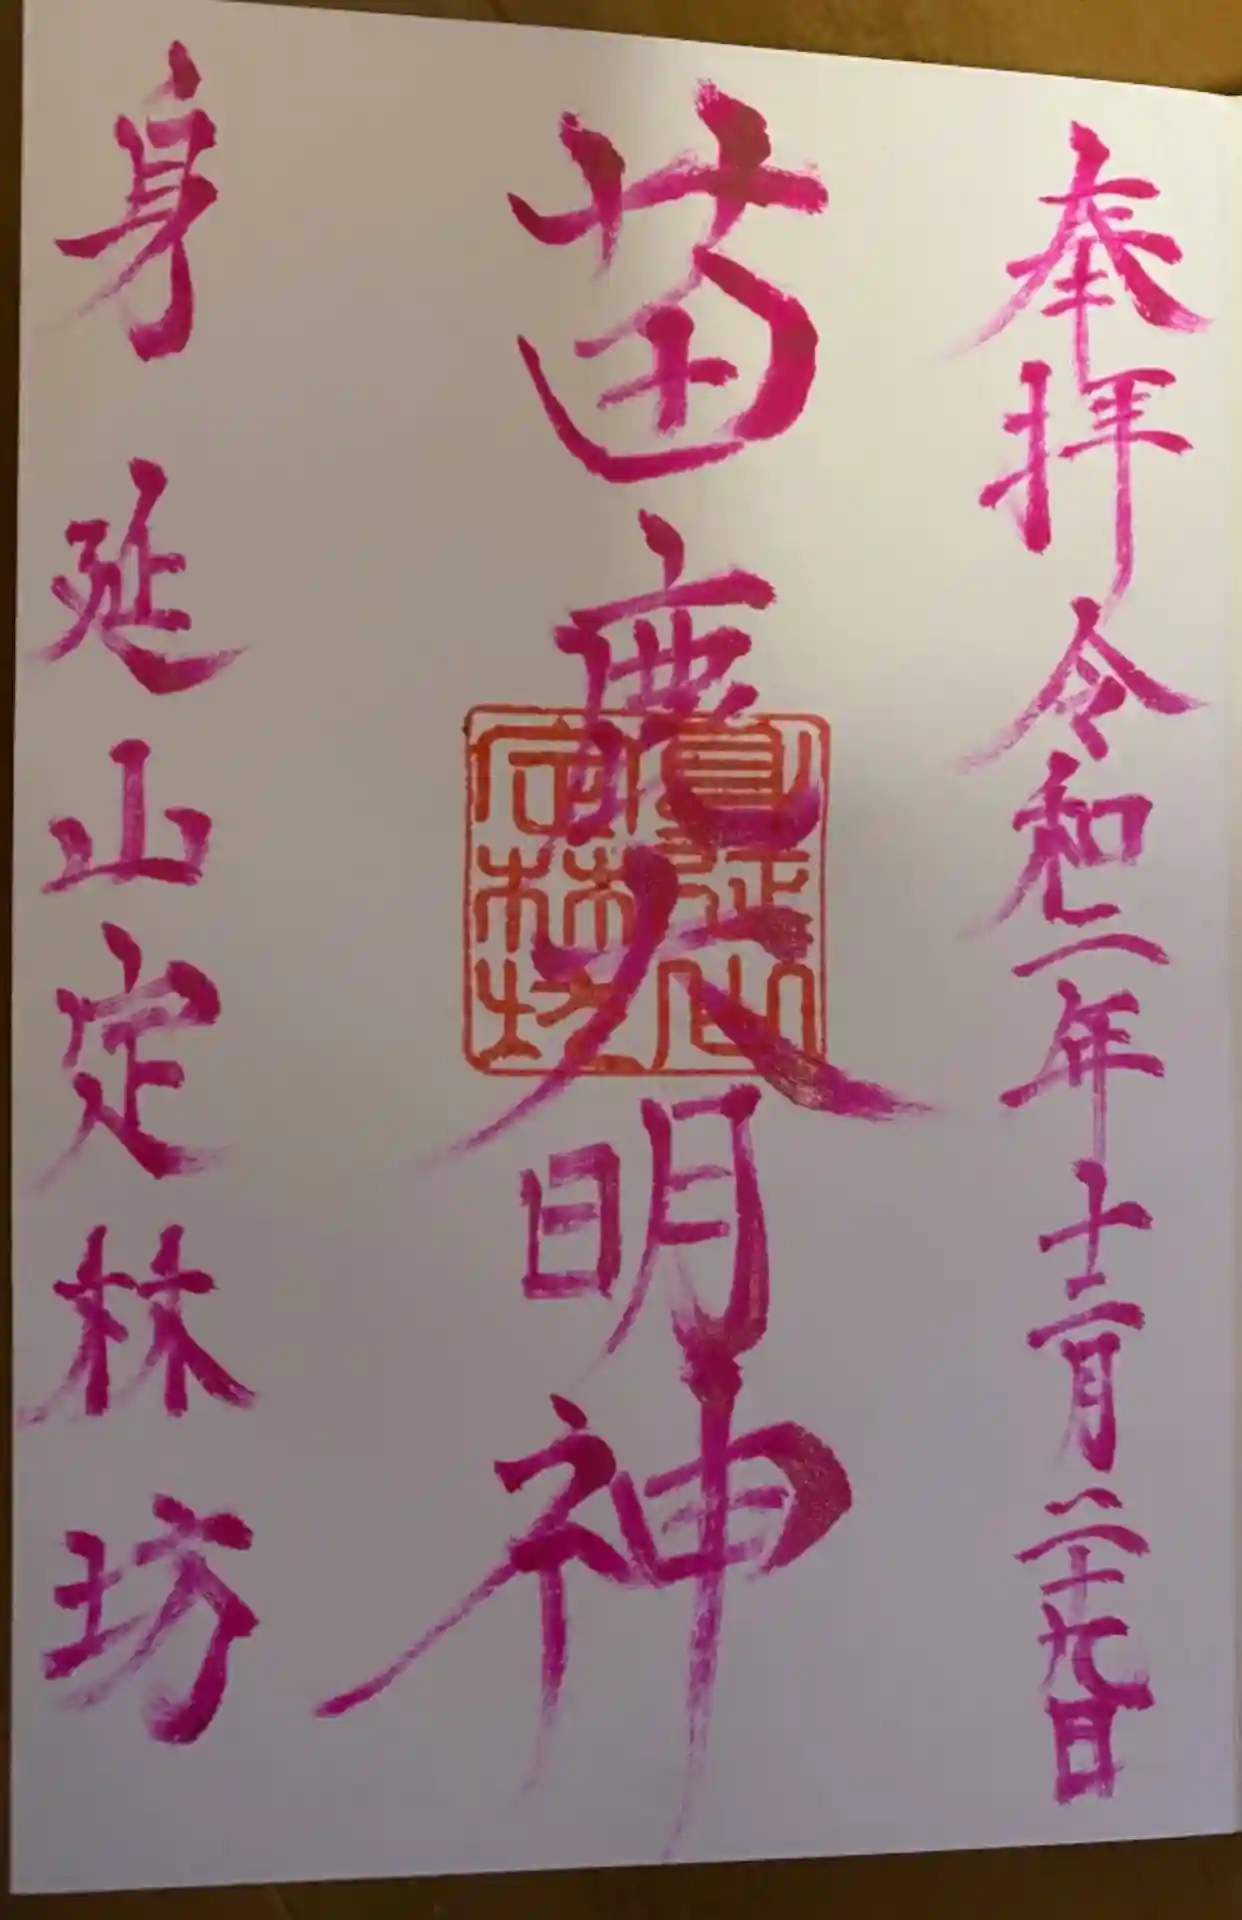 奉拝 令和二年十二月二十九日
苗鹿大明神
身延山定林坊
身延山
定林坊